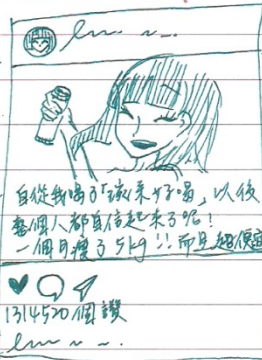 自從我喝了「該來好喝」以後
整個人都自信起來了呢!
一個月瘦了5kg!!而且超便宜
1314520個讚